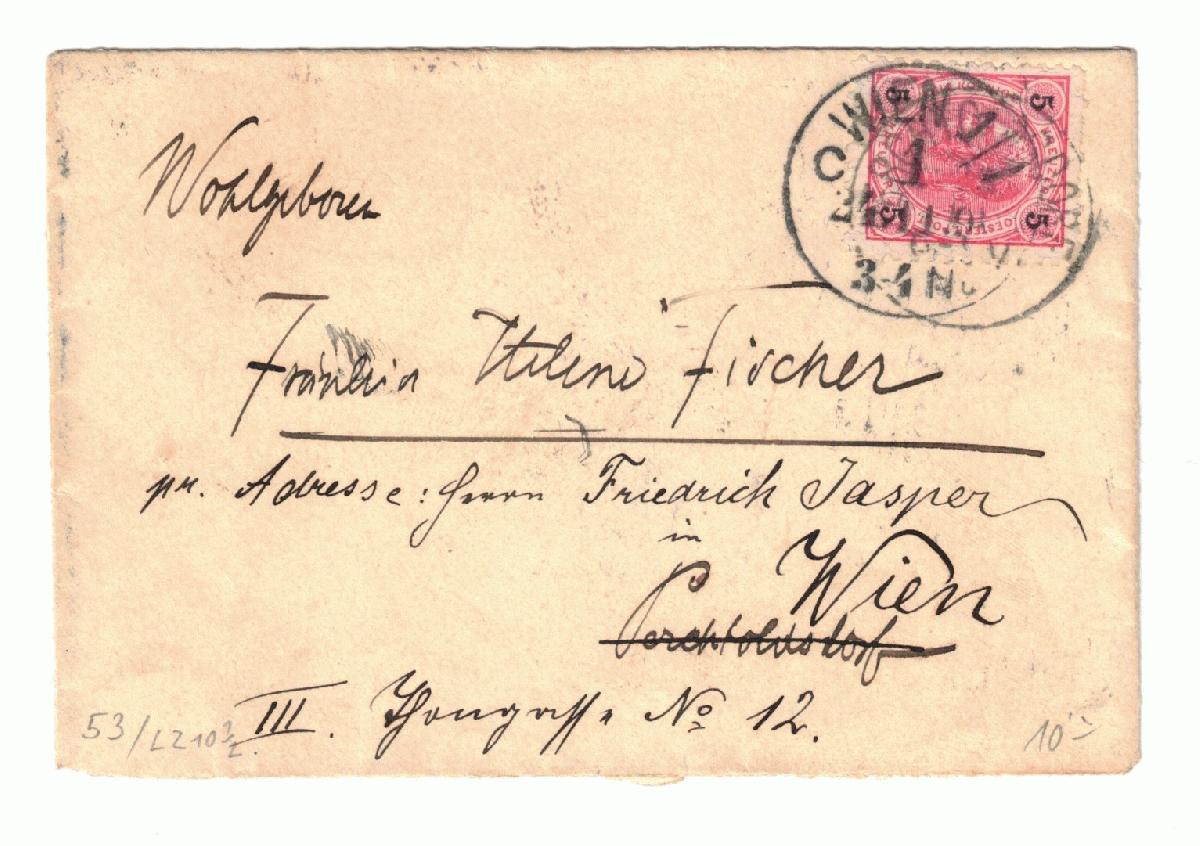 Wohlgeboren
Fräulein Helene Fischer
pr. Adresse: Herrn Friedrich Jasper
in
Wien
Perchtoldsdorf
III. Thongasse No 12.
WIEN 1/1
1
C
3-4 N.
5 5
5 5
53/
10